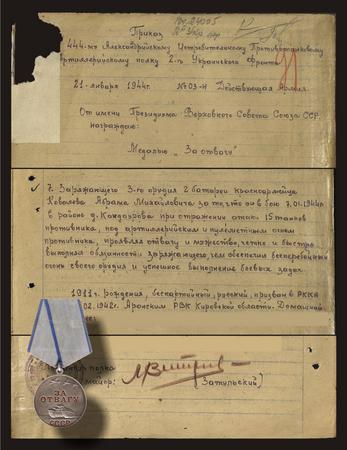 Приказ
444-му Александрийскому Истребительному Противотанковому
артиллерийскому полку 2-го Украинского Фронта
21 января 1944г. №03-Н Действующая Армия
От имени Президиума Верховного Совета Союза ССР
награждаю:
Медалью "За отвагу"
7. Заряжающего 3-го орудия 2 батареи красноармейца
Ковалева Абрама Михайловича за то, что он в бою 7.01.1944г.
в районе д. при отражении атаки 15 танков
противника, под артиллерийским и пулеметным огнем
противника, проявляя отвагу и мужество, четко и быстро
выполнял обязанности заряжающего, чем обеспечил бесперебойный
огонь своего орудия и успешное выполнение боевых задач.
1911г. рождения, беспартийный, русский, призван в РККА
.02.1942г. РВК Кировской области. Домашний
полка
майор: (Запульский)
ЗА
ОТВАГУ
СССР